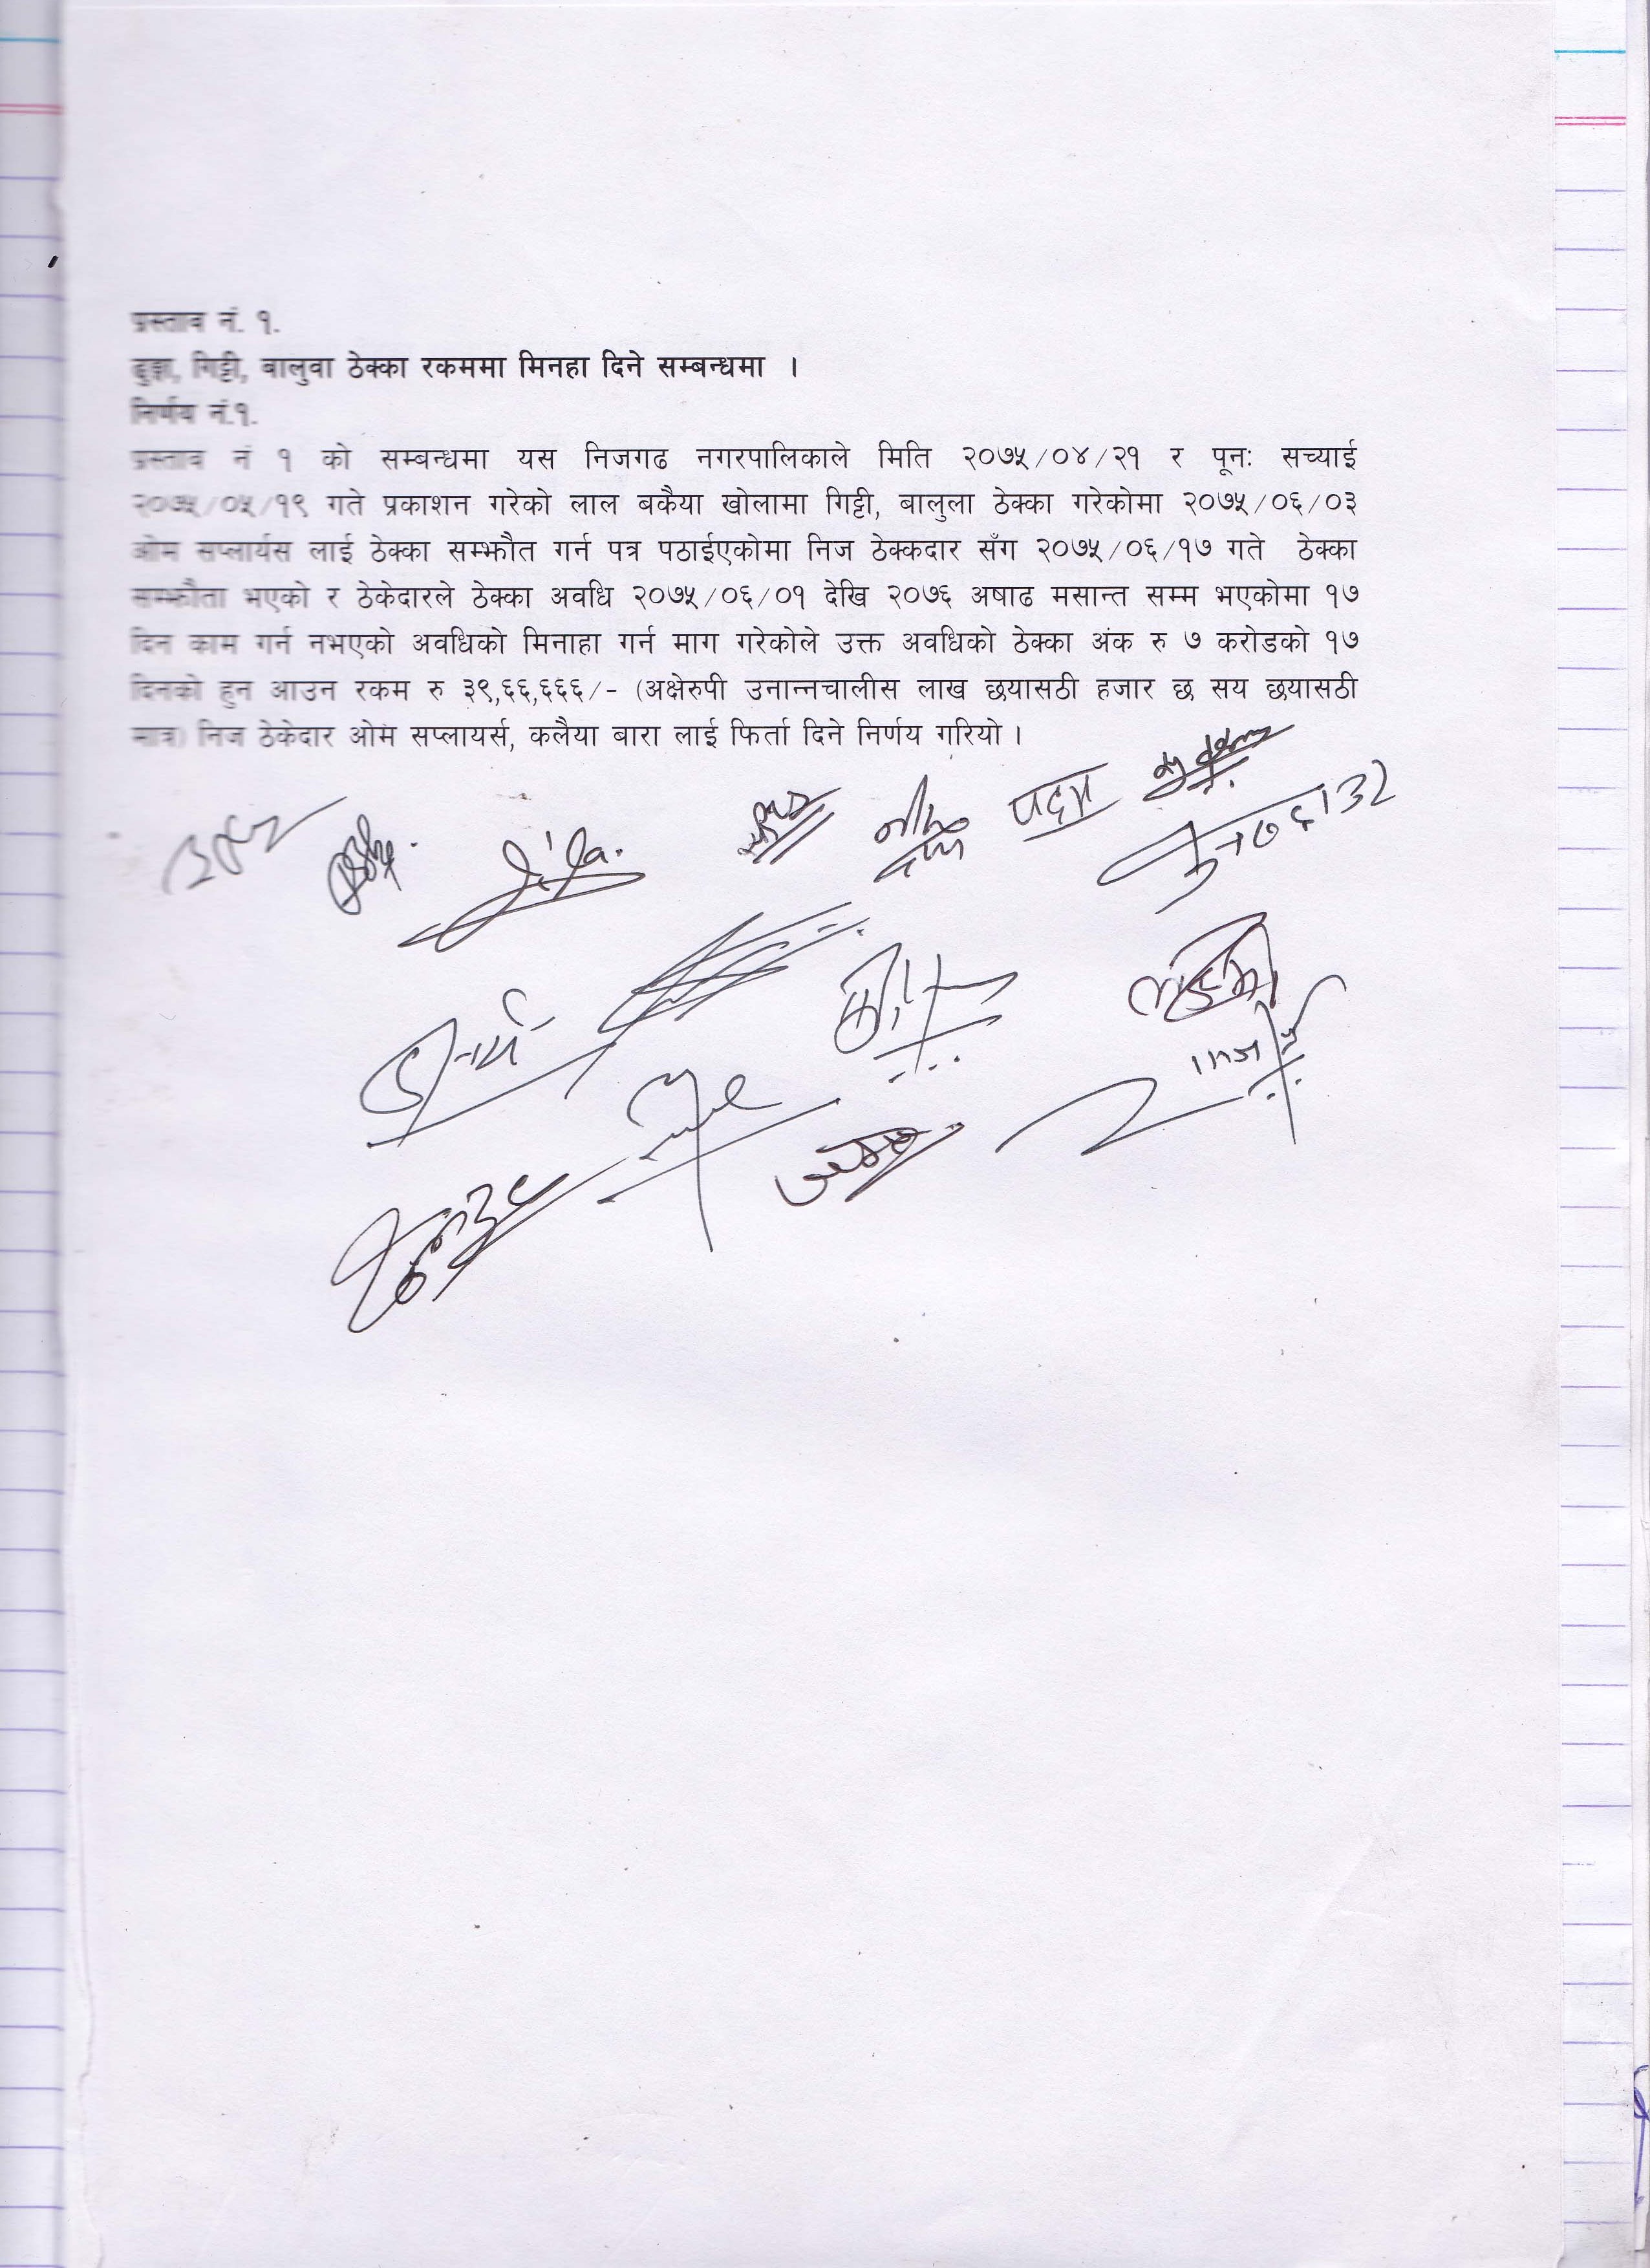 प्रस्ताव नं. १.
ढुङ्गा, गिट्टी, बालुवा ठेक्का रकममा मिनहा दिने सम्बन्धमा ।
निर्णय नं.१.
प्रस्ताव नं १ को सम्बन्धमा यस निजगढ नगरपालिकाले मिति २०७५/०४/२१ र पूनः सच्याई
२०७५/०५/१९ गते प्रकाशन गरेको लाल बकैया खोलामा गिट्टी, बालुला ठेक्का गरेकोमा २०७५/०६/०३
ओम सप्लार्यस लाई ठेक्का सम्झौत गर्न पत्र पठाईएकोमा निज ठेक्कदार सँग २०७५/०६/१७ गते ठेक्का
सम्झौता भएको र ठेकेदारले ठेक्का अवधि २०७५/०६/०१ देखि २०७६ अषाढ मसान्त सम्म भएकोमा १७
दिन काम गर्न नभएको अवधिको मिनाहा गर्न माग गरेकोले उक्त अवधिको ठेक्का अंक रु ७ करोडको १७
दिनको हुन आउन रकम रु ३९,६६,६६६/- (अक्षेरुपी उनान्नचालीस लाख छयासठी हजार छ सय छयासठी
मात्र) निज ठेकेदार ओम सप्लायर्स, कलैया बारा लाई फिर्ता दिने निर्णय गरियो ।
पदम